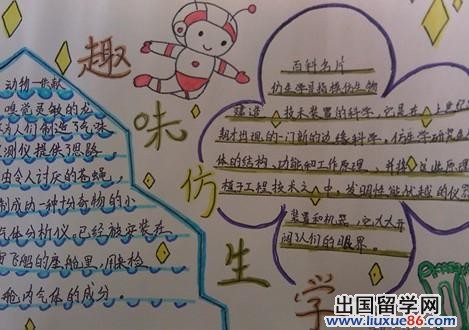 趣味仿生学
动物一族献
嗅觉灵敏的龙
为人们制造了气味
测仪提供了思路
由令人讨厌的苍蝇,
制成功一种十分奇物的小
气体分析仪,已经放安装在
宙飞船的座舱里,用来检
舱内气体的成分。
百科名片
仿生学是指模仿生物
建造 技术装置的科学,它是在上世纪
朝才出现的一门新的边缘科学,仿生学研究
体的结构、功能和工作原理,并将这些原理
植于工程技术之中,发明性能优越的仪
装置和机器,它大大开
阔了人们的眼界。
出国留学网
www.liuxue86.com